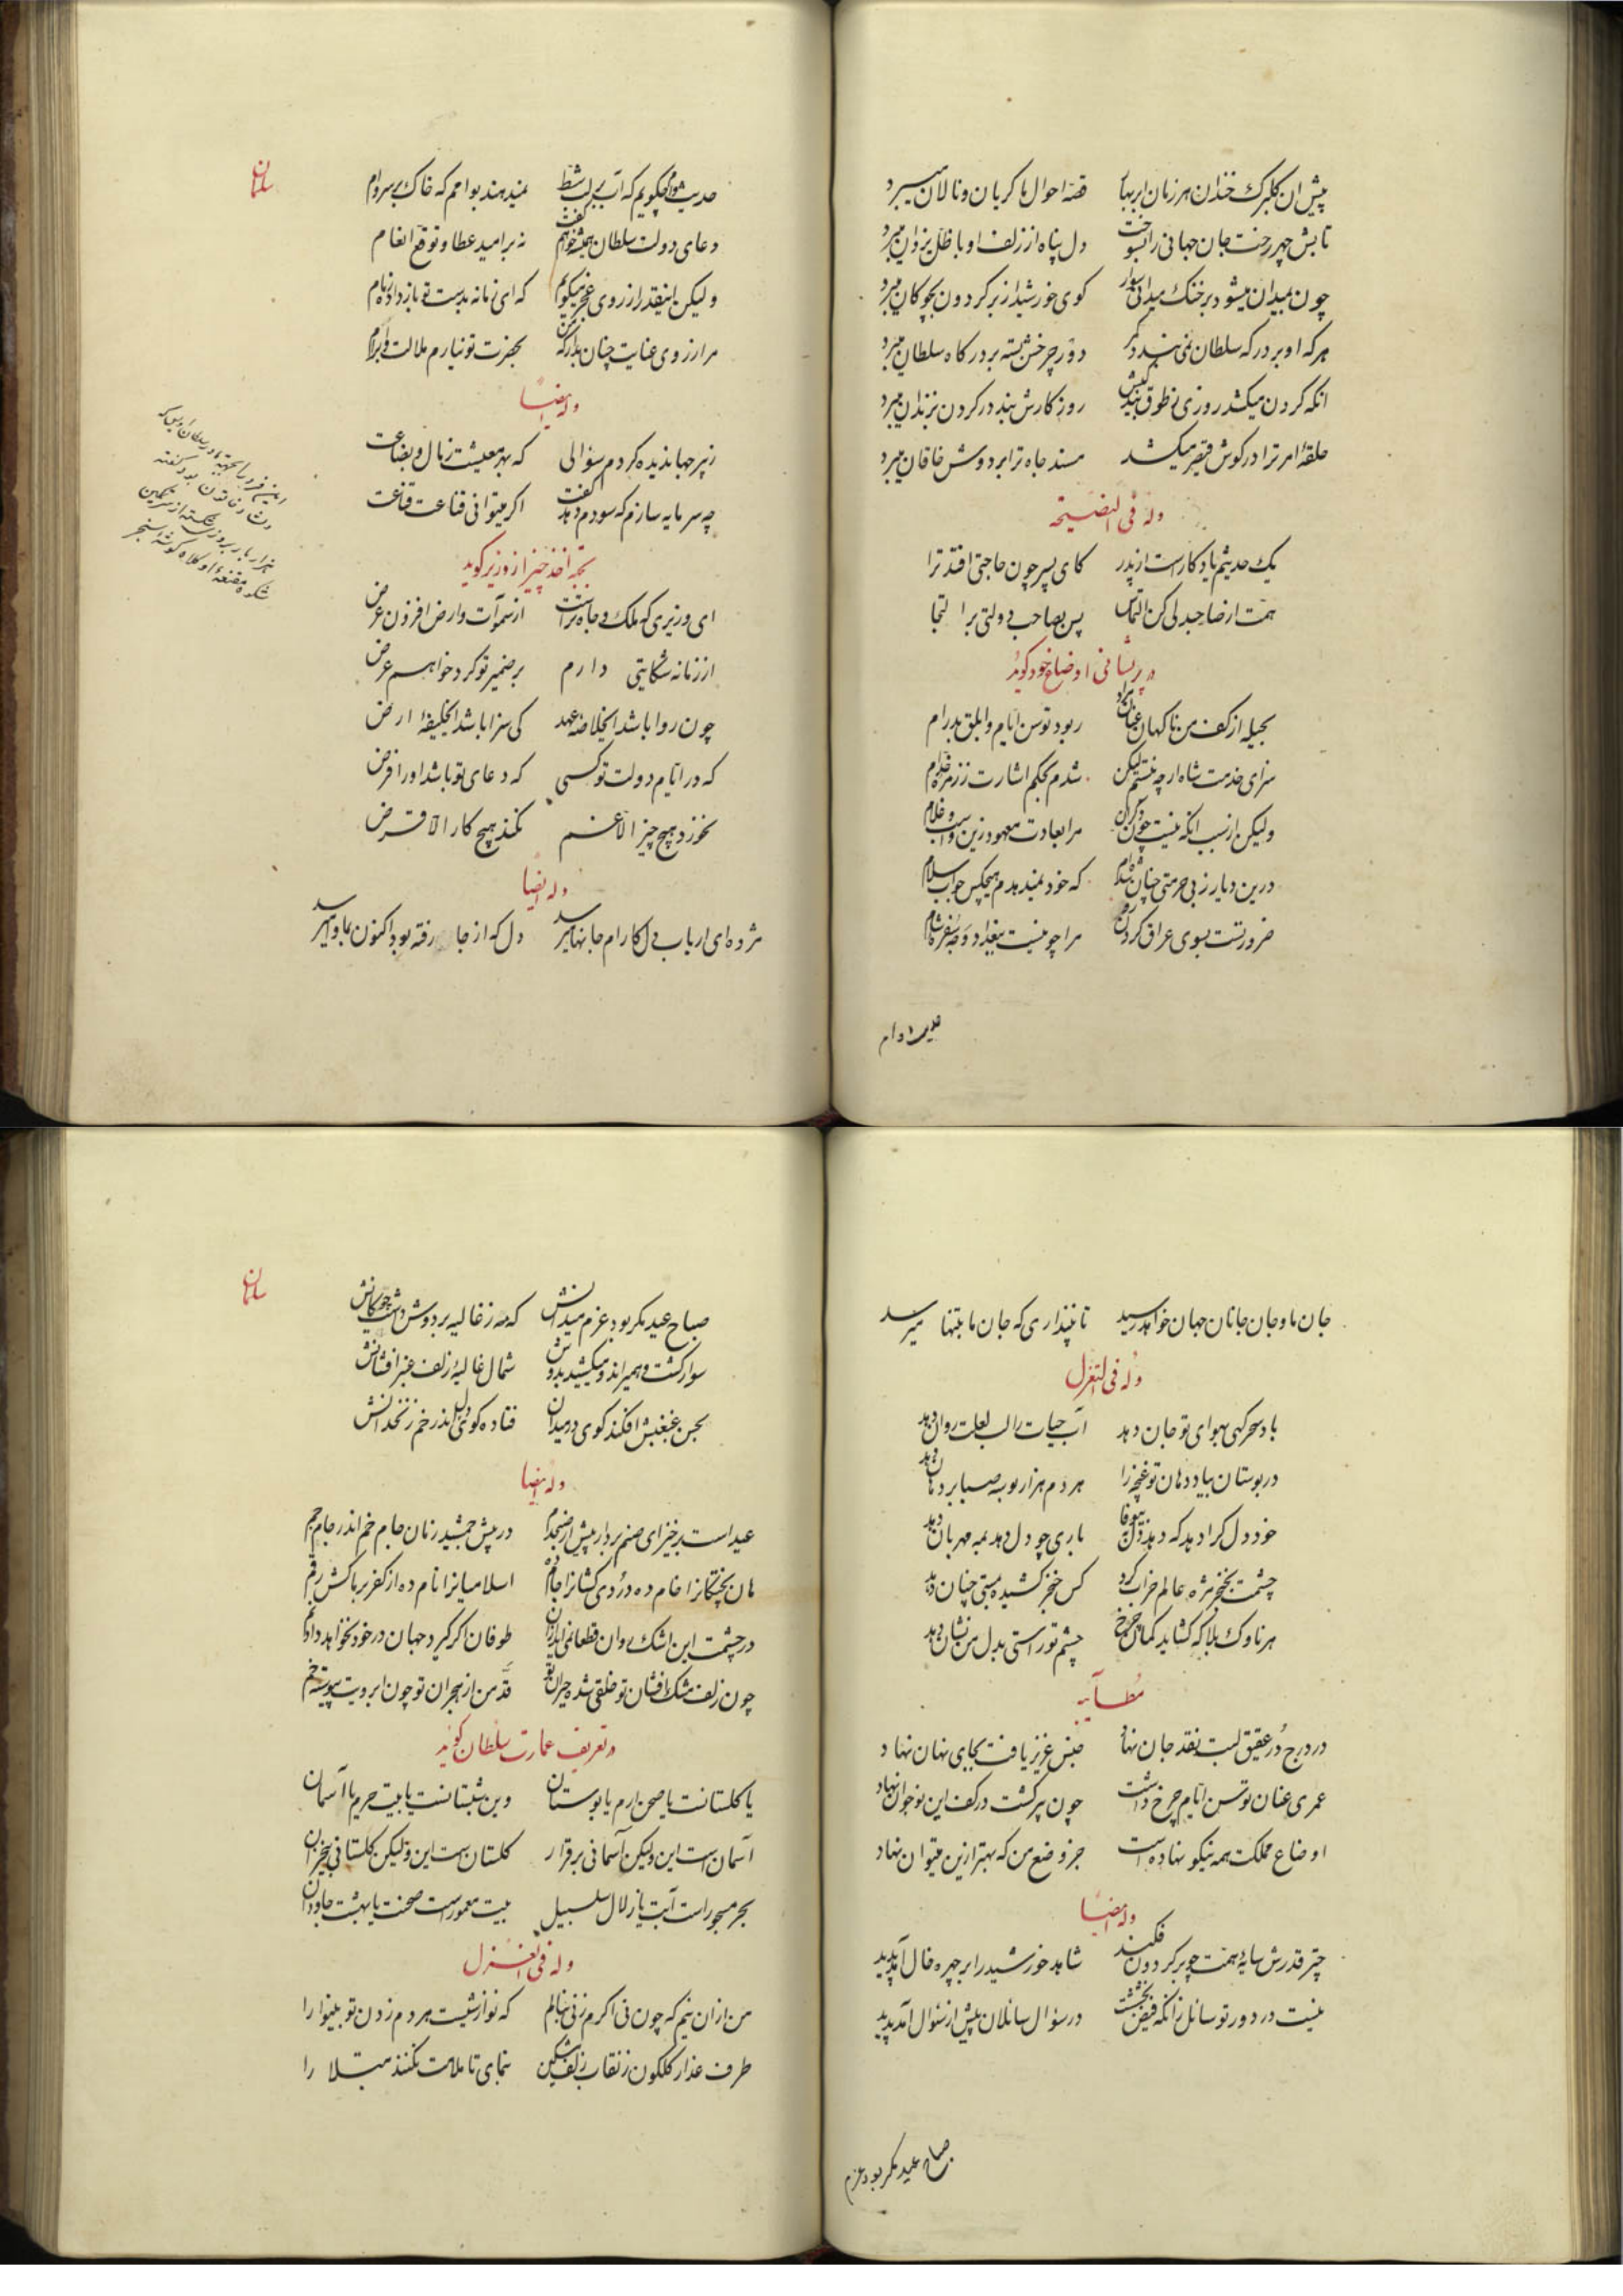 پیش ان کلبرک خندان هر زمان ابر بهار قصهٔ احوال ما کریان و نالان میبرد
تابش چهر رخت جان جهانی را بسوخت دل پناه از زلف او با ظل یزدان میبرد
چون بمیدان میشود بر خنک میدانی سوار کوی خورشید از بر کردون بچوکان میبرد
هر که او بر درکه سلطان نمی بندد کمر دور چرخش بسته بر درکاه سلطان میبرد
انکه کردن میکشد روزی ز طوق بندکیش روز کارش بند در کردن بزندان میبرد
حلقهٔ امر ترا در کوش قیصر میکشد مسند جاه ترا بر دوش خاقان میبرد
وله فی النصیحه
یک حدیثم یادکارست از پدر کای پسر چون حاجتی افتد ترا
همت از صاحبدلی کن التماس پس بصاحب دولتی بر التجا
در پریشانی اوضاع خود کوید
بحیله از کف من ناکهان عنان مراد ربود توسن ایام و ابلق بدرام
سزای خدمت شاه ارچه نیستم لیکن شدم بحکم اشارت ز زمره خدام
ولیکن از سبب انکه نیست چون دکران مرا بعادت معهود زین و اسب و غلام
درین دیار ز بی حرمتی چنان شده ام که خود نمیدهدم هیچکس جواب سلام
ضرورتست بسوی عراق کردن روی مرا چو نیست ببغداد وجه سفره شام
حدیث وام
سلمان
حدیث وام چکویم که آب بر لب شط نمیدهند بوامم که خاک بر سر وام
دعای دولت سلطان همیشه خواهم گفت نه بر امید عطا و توقع انعام
ولیکن اینقدر از روی عجز میکویم که ای زمانه بدست تو باز داده زمام
مرا ز روی عنایت چنان بدار که من بحضرت تو نیارم ملالت و ابرام
وله ایضاً
ز پیر جهاندیده کردم سؤالی که بهر معیشت ز مال و بضاعت
چه سرمایه سازم که سودم دهد گفت اکر میتوانی قناعت قناعت
بجهة اخذ چیز از وزیر کوید
ای وزیری که ملک و جاه تراست از سموات و ارض افزون عرض
از زمانه شکایتی دارم بر ضمیر تو کرد خواهم عرض
چون روا باشد ای خلاصه عهد کی سزا باشد ای خلیفهٔ ارض
که در ایام دولت تو کسی که دعای تو باشد او را فرض
نخورد هیچ چیز الا غم نکند هیچ کار الا قرض
وله ایضا
مژده ای ارباب دل کارام جانها میرسد دل که از جا رفته بود اکنون بماوا میرسد
هزار بار بروز شکسته از سر تمکین
شکوه مقنعهٔ او کلاه کوشهٔ سنجر
جان ما و جان جانان جهان خواهد رسید تا نپنداری که جان ما بتنها میرسد
وله فی التغزل
باد سحرکهی بهوای تو جان دهد آب حیات را لب لعلت روان دهد
در بوستان بیاد دهان تو غنچه را هر دم هزار بوسه صبا بر دهان دهد
خود دل کرا دهد که دهد دل بیوفا باری چو دل دهد بمه مهربان دهد
چشمت بخنجر مژه عالم خراب کرد کس خنجر کشیده بمستی چنان دهد
هر ناوک بلا که کشاید کمان چرخ چشم تو راستی بدل من نشان دهد
مطایبه
در درج در عقیق لبت نقد جان نهاد جنس عزیز یافت بجای نهان نهاد
عمری عنان توسن ایام چرخ داشت چون پیر کشت در کف این نوجوان نهاد
اوضاع مملکت همه نیکو نهاده است جز وضع من که بهتر ازین میتوان نهاد
وله ایضاً
چتر قدرش سایهٔ همت چو بر کردون فکند شاهد خورشید را بر چهره خال آمد پدید
نیست در دور تو سائل زانکه فیض بخششت در سؤال سائلان پیش از سئوال آمد پدید
صباح عید مکر بود عزم
سلمان
صباح عید مکر بود عزم میدانش که مه ز غالیه بر دوش داشت چوکانش
سوار کشت و همیراند و میکشید بدوش شمال غالیهٔ زلف عنبر افشانش
بحسن غبغبش افکند کوی در میدان فتاده کوی دل اندر خم زنخدانش
وله ایضا
عید است برخیز ای صنم بردار پیش از صبحدم در پیش جمشید زمان جام خم اندر جام جم
هان پختکانرا خام ده دردی کشانرا جام ده اسلامیانرا نام ده از کفر بر ما کش رقم
در چشمت این اشک روان قطعا نمی اید ازان طوفان اکر کیرد جهان در خود نخواهد داد نم
چون زلف مشک افشان تو خلقی شده حیران تو قد من از هجران تو چون ابرویت پیوسته خم
در تعریف عمارت سلطان کوید
یا کلستانست یا صحن ارم یا بوستان وین شبستانست یا بیت حرم یا آسمان
آسمان است این ولیکن آسمانی برقرار کلستان است این ولیکن کلستانی بیخزان
بحر مسجور است آبت یا زلال سلسبیل بیت معمور است صحنت یا بهشت جاودان
وله فی الغزل
من ازان نیم که چون نی اکرم زنی بنالم که نوازشیست هر دم زدن تو بینوا را
طرف عذار کلکون ز نقاب زلف مشکین بنمای تا ملامت نکنند مبتلا را